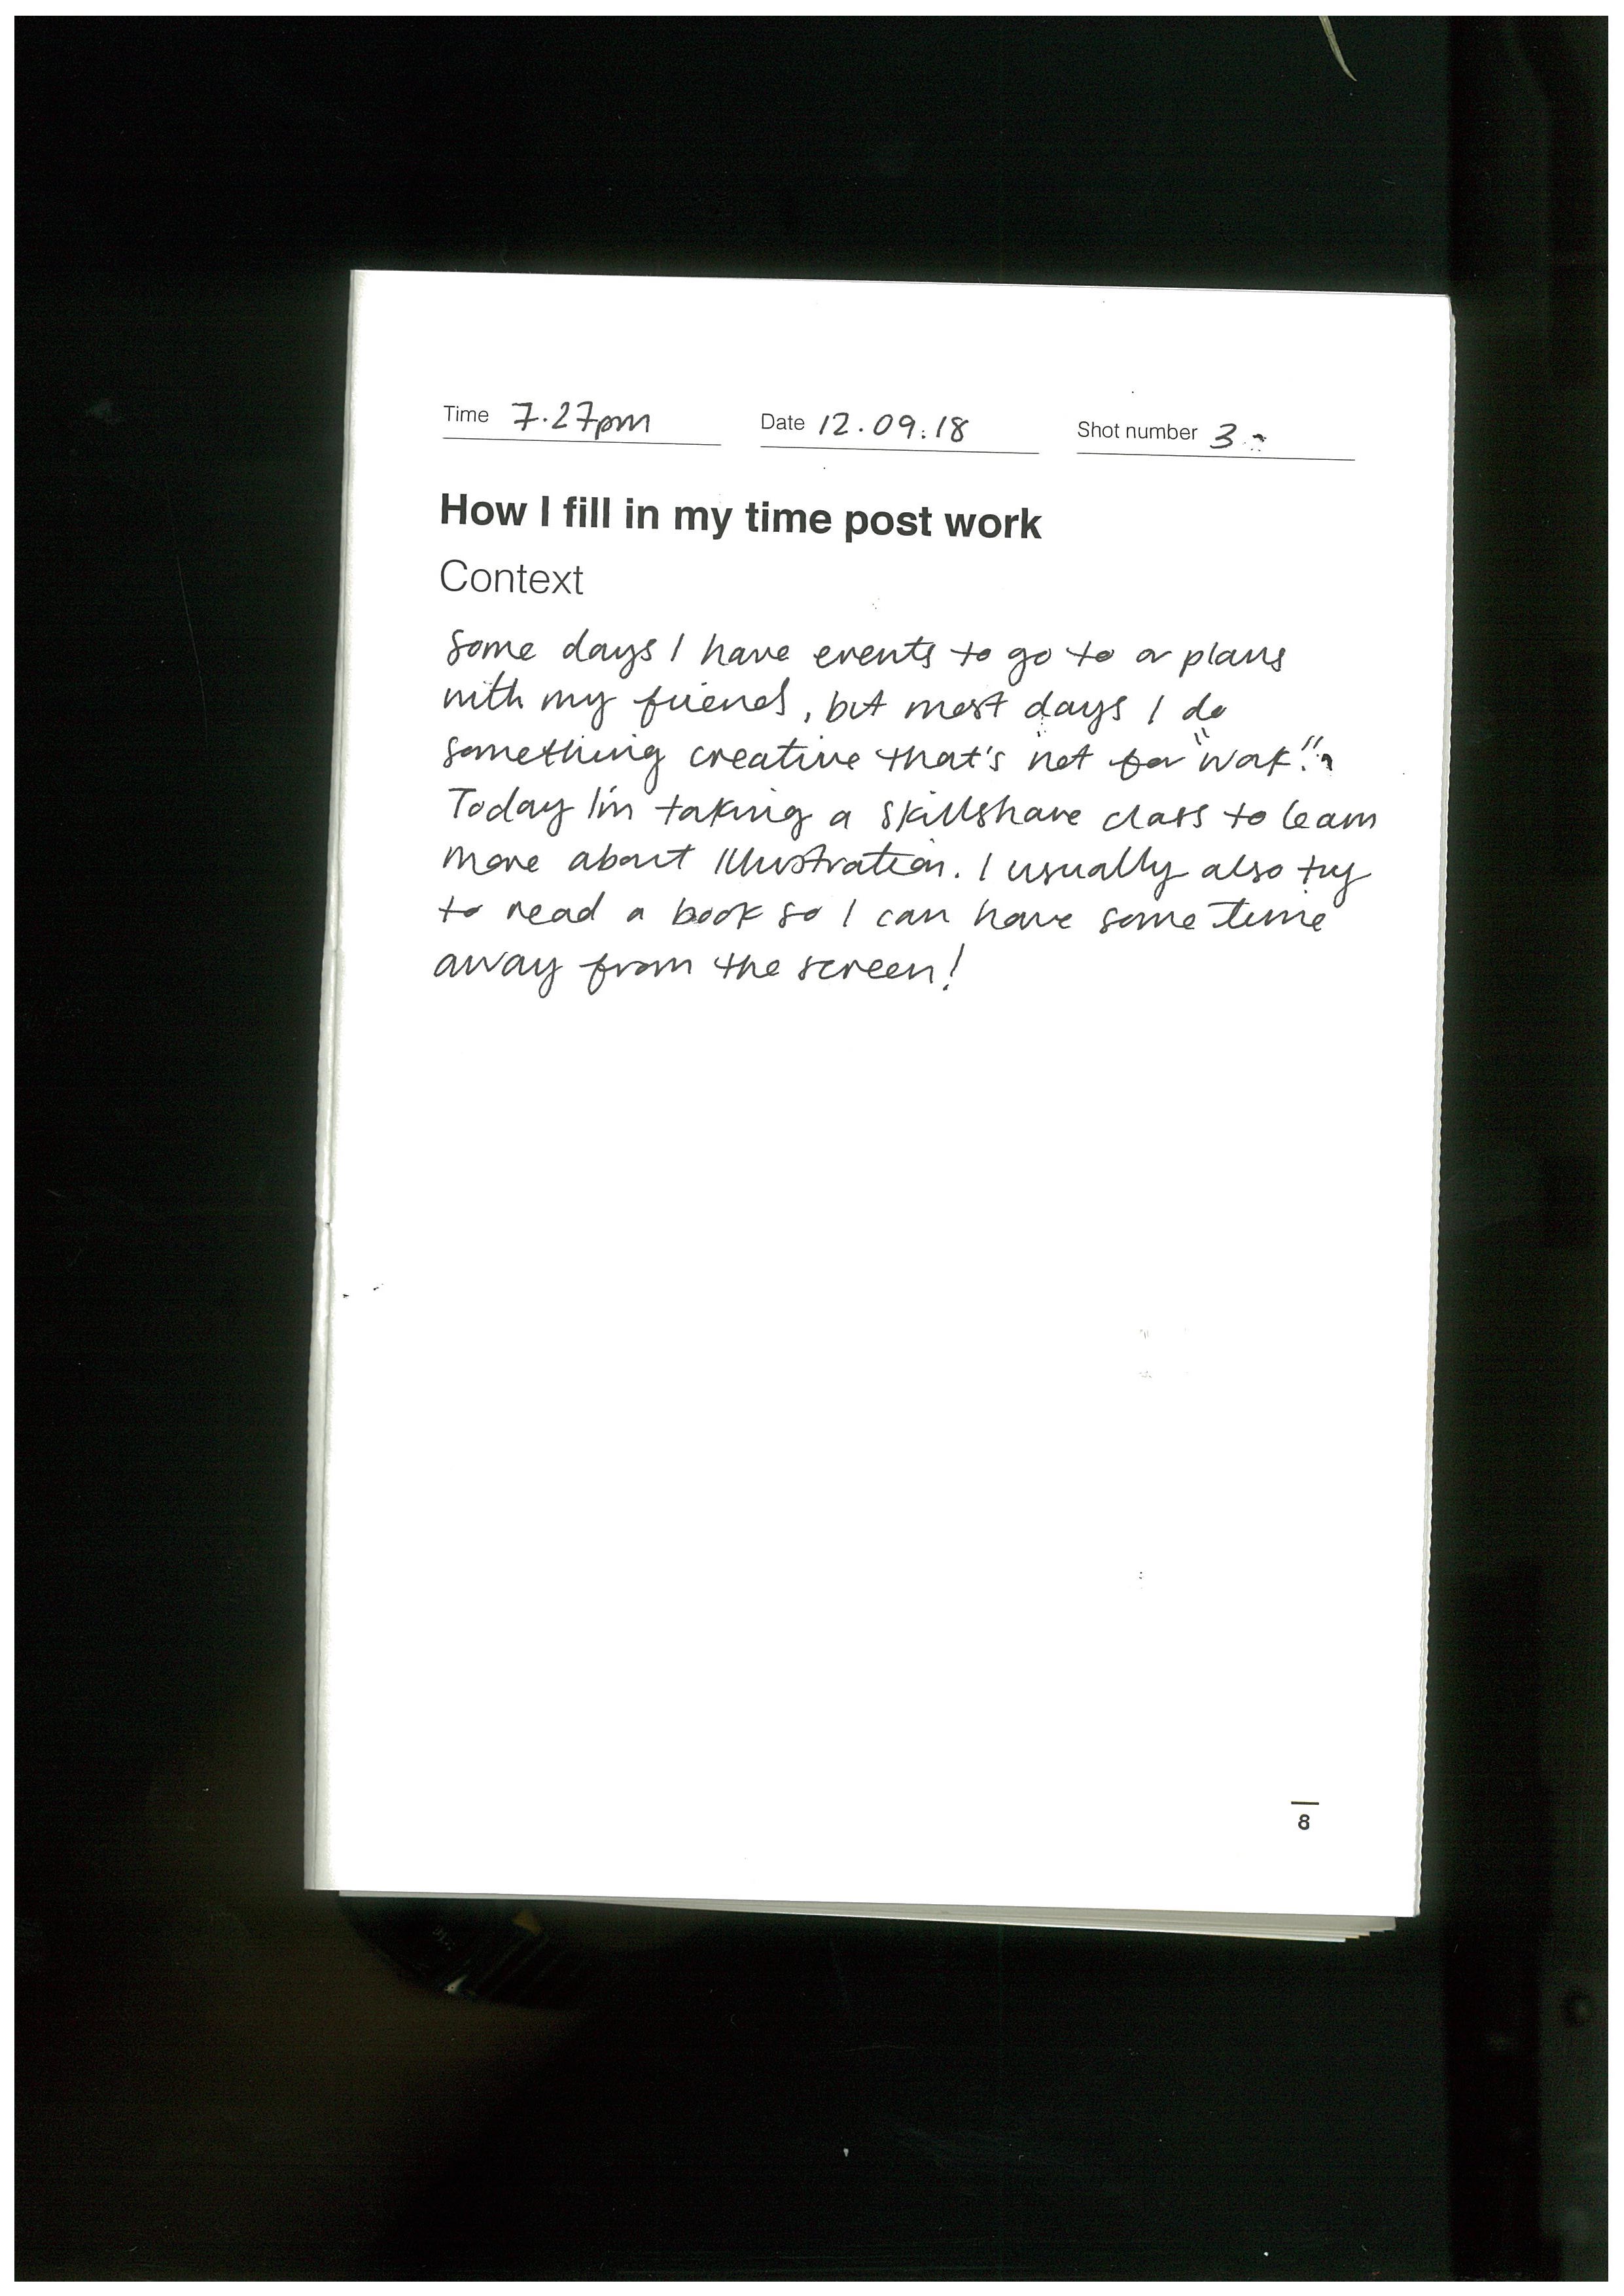 Time 7.27pm Date 12.09.18 Shot number 3
How I fill in my time post work
Context
Some days I have events to go to or plans
with my friends, but most days I do
something creative that's not for "work".
Today I'm taking a skillshare class to learn
more about illustration. I usually also try
to read a book so I can have some time
away from the screen!
8